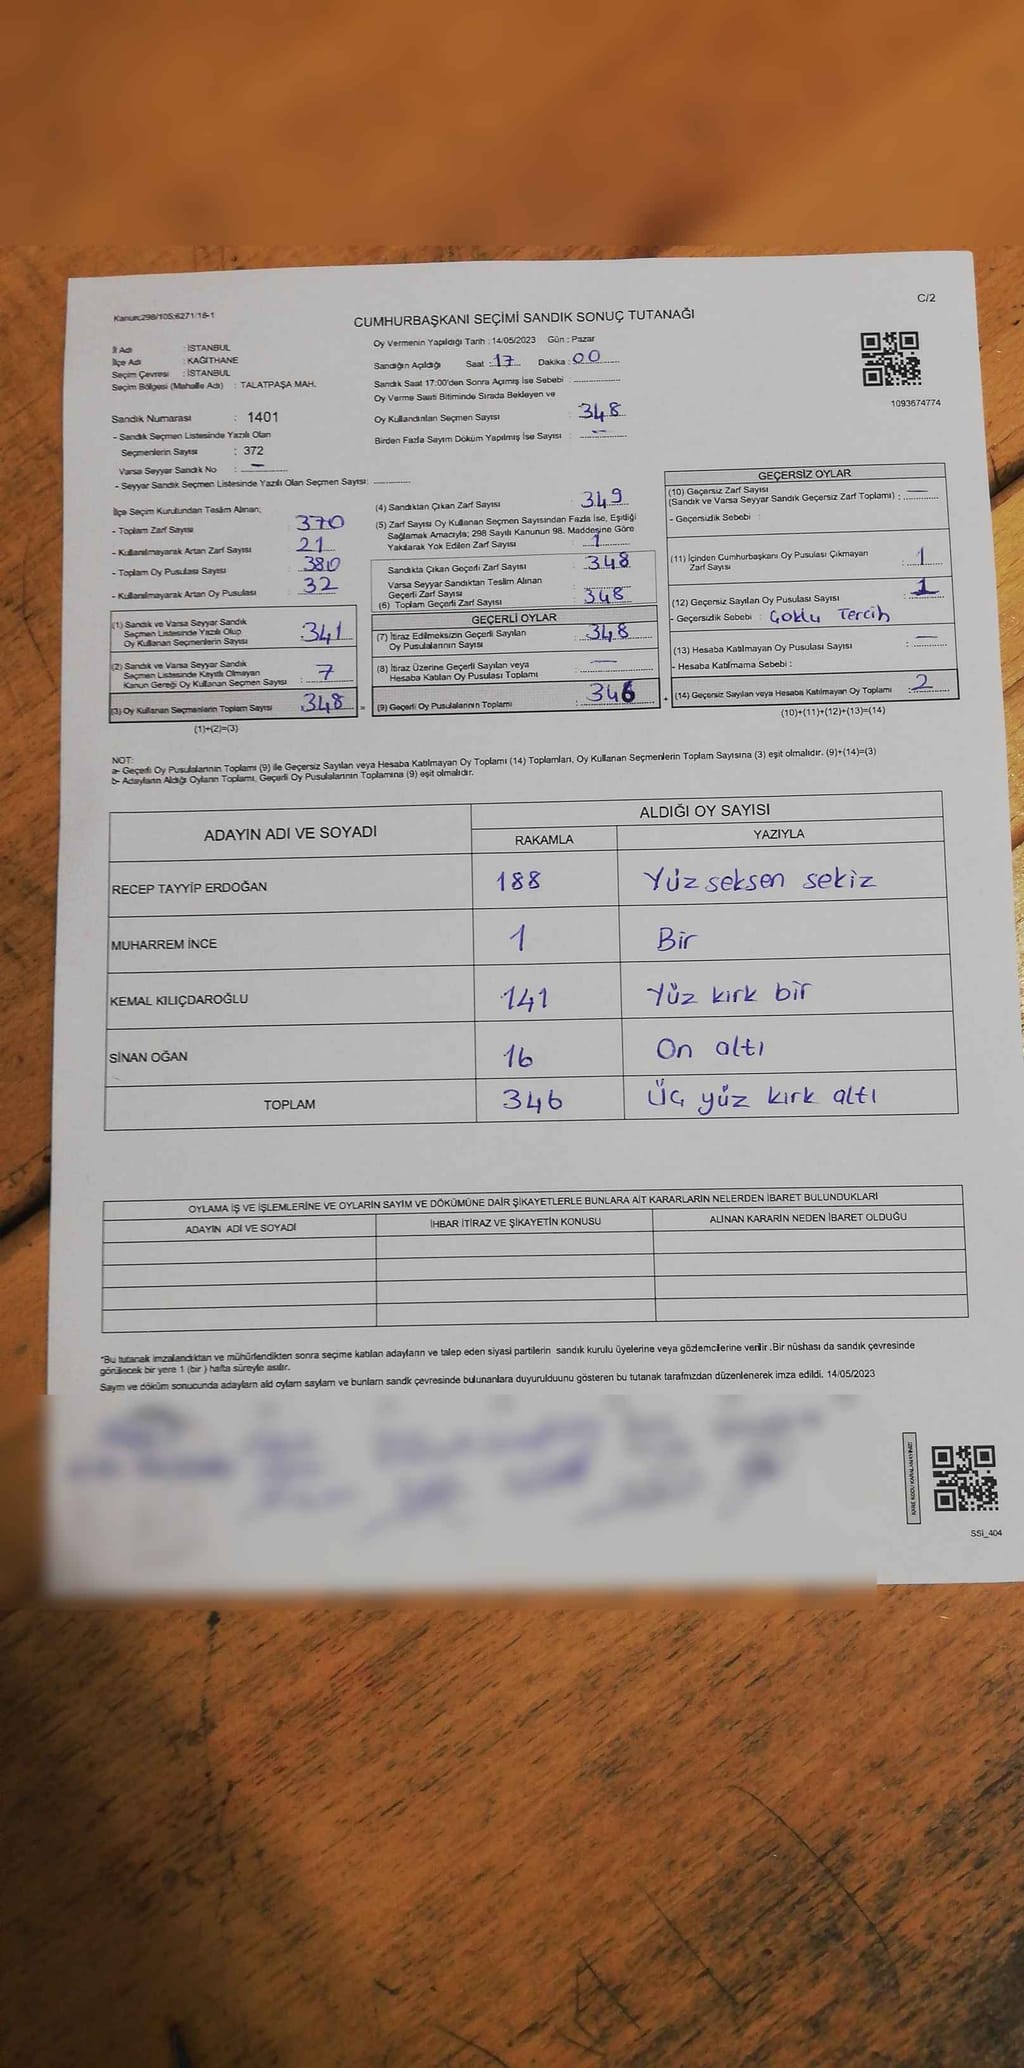 Kanun:298/105:6271/16-1
C/2
CUMHURBAŞKANI SEÇİMİ SANDIK SONUÇ TUTANAĞI
İl Adı : İSTANBUL
İlçe Adı : KAĞITHANE
Seçim Çevresi : İSTANBUL
Seçim Bölgesi (Mahalle Adı) : TALATPAŞA MAH.
Sandık Numarası : 1401
- Sandık Seçmen Listesinde Yazılı Olan
Seçmenlerin Sayısı : 372
Varsa Seyyar Sandık No : —
- Seyyar Sandık Seçmen Listesinde Yazılı Olan Seçmen Sayısı:
Oy Vermenin Yapıldığı Tarih : 14/05/2023 Gün : Pazar
Sandığın Açıldığı Saat : 17 Dakika : 00
Sandık Saat 17:00'den Sonra Açımış İse Sebebi :
Oy Verme Saati Bitiminde Sırada Bekleyen ve
Oy Kullandırılan Seçmen Sayısı : 348
Birden Fazla Sayım Döküm Yapılmış İse Sayısı : —
1093674774
İlçe Seçim Kurulundan Teslim Alınan;
- Toplam Zarf Sayısı : 370
- Kullanılmayarak Artan Zarf Sayısı : 21
- Toplam Oy Pusulası Sayısı : 380
- Kullanılmayarak Artan Oy Pusulası : 32
(1) Sandık ve Varsa Seyyar Sandık
Seçmen Listesinde Yazılı Olup
Oy Kullanan Seçmenlerin Sayısı : 341
(2) Sandık ve Varsa Seyyar Sandık
Seçmen Listesinde Kayıtlı Olmayan
Kanun Gereği Oy Kullanan Seçmen Sayısı : 7
(3) Oy Kullanan Seçmenlerin Toplam Sayısı : 348
(1)+(2)=(3)
(4) Sandıktan Çıkan Zarf Sayısı : 349
(5) Zarf Sayısı Oy Kullanan Seçmen Sayısından Fazla İse, Eşitliği
Sağlamak Amacıyla; 298 Sayılı Kanunun 98. Maddesine Göre
Yakılarak Yok Edilen Zarf Sayısı : 1
Sandıkta Çıkan Geçerli Zarf Sayısı : 348
Varsa Seyyar Sandıktan Teslim Alınan
Geçerli Zarf Sayısı
(6) Toplam Geçerli Zarf Sayısı : 348
GEÇERLİ OYLAR
(7) İtiraz Edilmeksizin Geçerli Sayılan
Oy Pusulalarının Sayısı : 348
(8) İtiraz Üzerine Geçerli Sayılan veya
Hesaba Katılan Oy Pusulası Toplamı : —
(9) Geçerli Oy Pusulalarının Toplamı : 346
GEÇERSİZ OYLAR
(10) Geçersiz Zarf Sayısı
(Sandık ve Varsa Seyyar Sandık Geçersiz Zarf Toplamı) : —
- Geçersizlik Sebebi :
(11) İçinden Cumhurbaşkanı Oy Pusulası Çıkmayan
Zarf Sayısı : 1
(12) Geçersiz Sayılan Oy Pusulası Sayısı : 1
- Geçersizlik Sebebi : Çoklu Tercih
(13) Hesaba Katılmayan Oy Pusulası Sayısı : —
- Hesaba Katılmama Sebebi :
(14) Geçersiz Sayılan veya Hesaba Katılmayan Oy Toplamı : 2
(10)+(11)+(12)+(13)=(14)
NOT:
a- Geçerli Oy Pusulalarının Toplamı (9) ile Geçersiz Sayılan veya Hesaba Katılmayan Oy Toplamı (14) Toplamları, Oy Kullanan Seçmenlerin Toplam Sayısına (3) eşit olmalıdır. (9)+(14)=(3)
b- Adayların Aldığı Oyların Toplamı, Geçerli Oy Pusulalarının Toplamına (9) eşit olmalıdır.
ADAYIN ADI VE SOYADI ALDIĞI OY SAYISI
RAKAMLA YAZIYLA
RECEP TAYYİP ERDOĞAN 188 Yüz seksen sekiz
MUHARREM İNCE 1 Bir
KEMAL KILIÇDAROĞLU 141 Yüz kırk bir
SİNAN OĞAN 16 On altı
TOPLAM 346 Üç yüz kırk altı
OYLAMA İŞ VE İŞLEMLERİNE VE OYLARIN SAYIM VE DÖKÜMÜNE DAİR ŞİKAYETLERLE BUNLARA AİT KARARLARIN NELERDEN İBARET BULUNDUKLARI
ADAYIN ADI VE SOYADI İHBAR İTİRAZ VE ŞİKAYETİN KONUSU ALINAN KARARIN NEDEN İBARET OLDUĞU
*Bu tutanak imzalandıktan ve mühürlendikten sonra seçime katılan adayların ve talep eden siyasi partilerin sandık kurulu üyelerine veya gözlemcilerine verilir .Bir nüshası da sandık çevresinde
görülecek bir yere 1 (bir ) hafta süreyle asılır.
Sayım ve döküm sonucunda adayların ald oyların sayıların ve bunların sandk çevresinde bulunanlara duyurulduunu gösteren bu tutanak tarafmzdan düzenlenerek imza edildi. 14/05/2023
SSİ_404